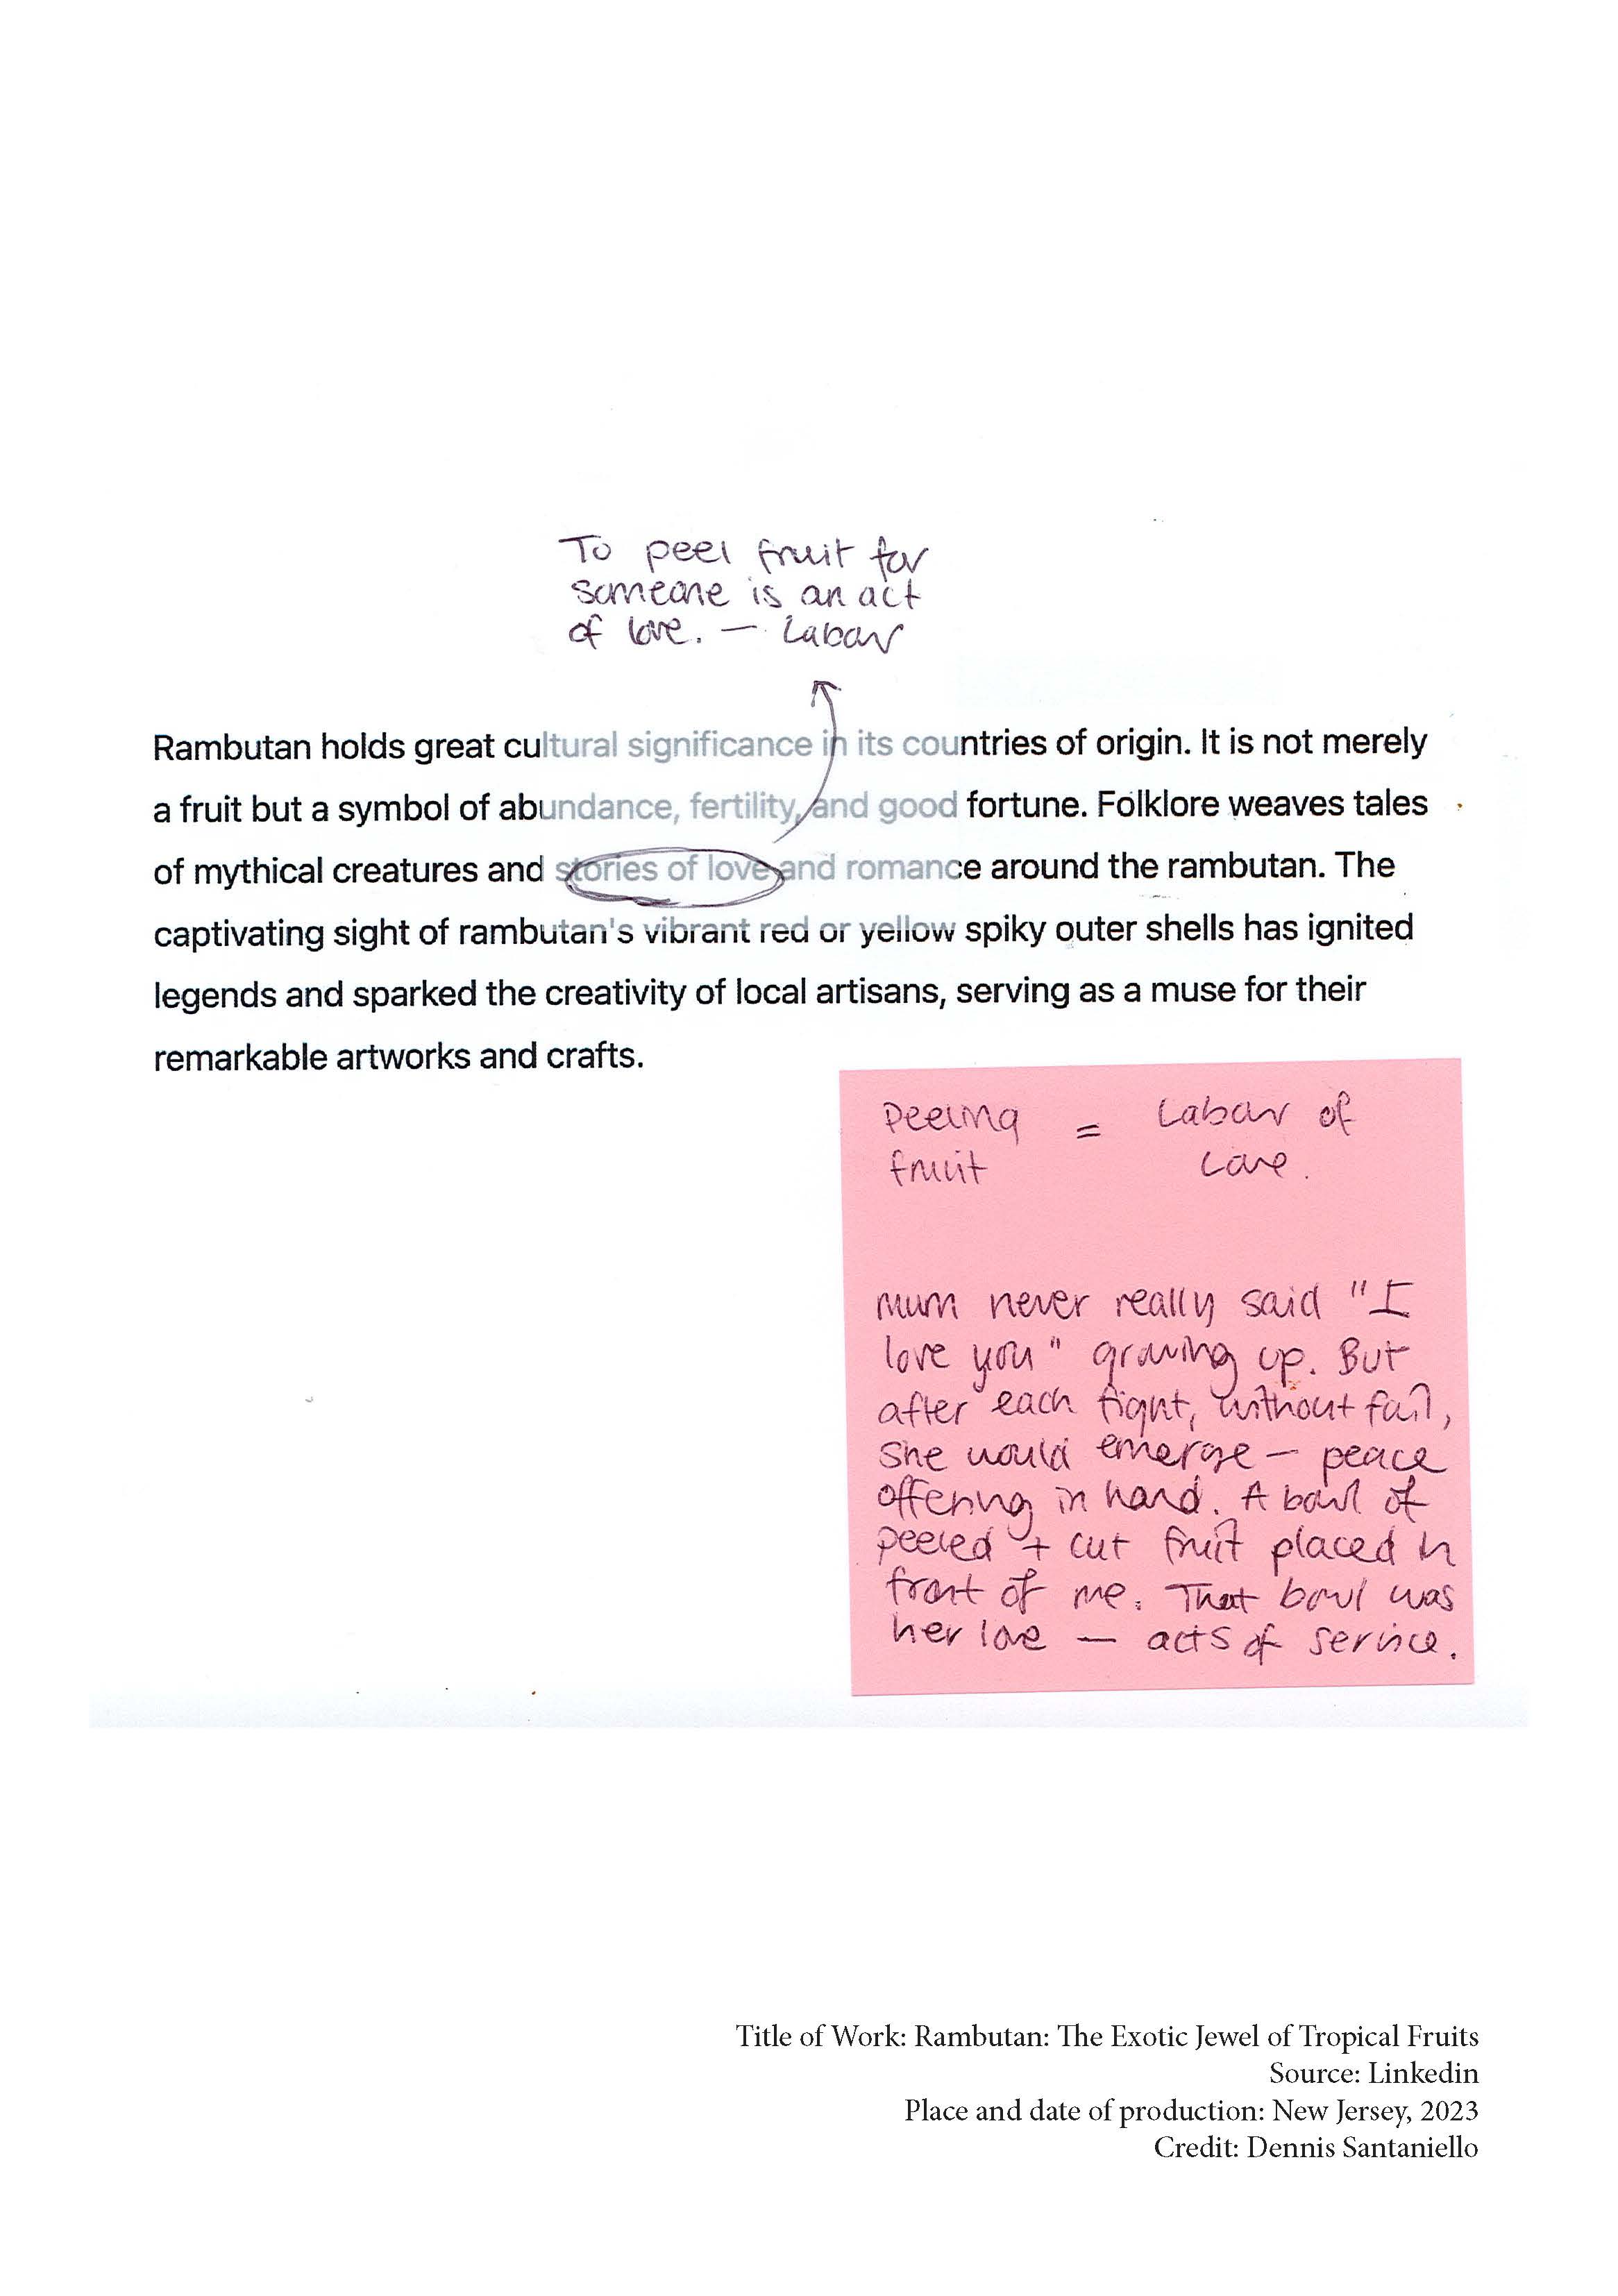 To peel fruit for
someone is an act
of love. — Labour
Rambutan holds great cultural significance in its countries of origin. It is not merely
a fruit but a symbol of abundance, fertility, and good fortune. Folklore weaves tales
of mythical creatures and stories of love and romance around the rambutan. The
captivating sight of rambutan's vibrant red or yellow spiky outer shells has ignited
legends and sparked the creativity of local artisans, serving as a muse for their
remarkable artworks and crafts.
Peeling = Labour of
fruit Love.
Mum never really said "I
love you" growing up. But
after each fight, without fail,
she would emerge — peace
offering in hand. A bowl of
peeled + cut fruit placed in
front of me. That bowl was
her love — acts of service.
Title of Work: Rambutan: The Exotic Jewel of Tropical Fruits
Source: Linkedin
Place and date of production: New Jersey, 2023
Credit: Dennis Santaniello